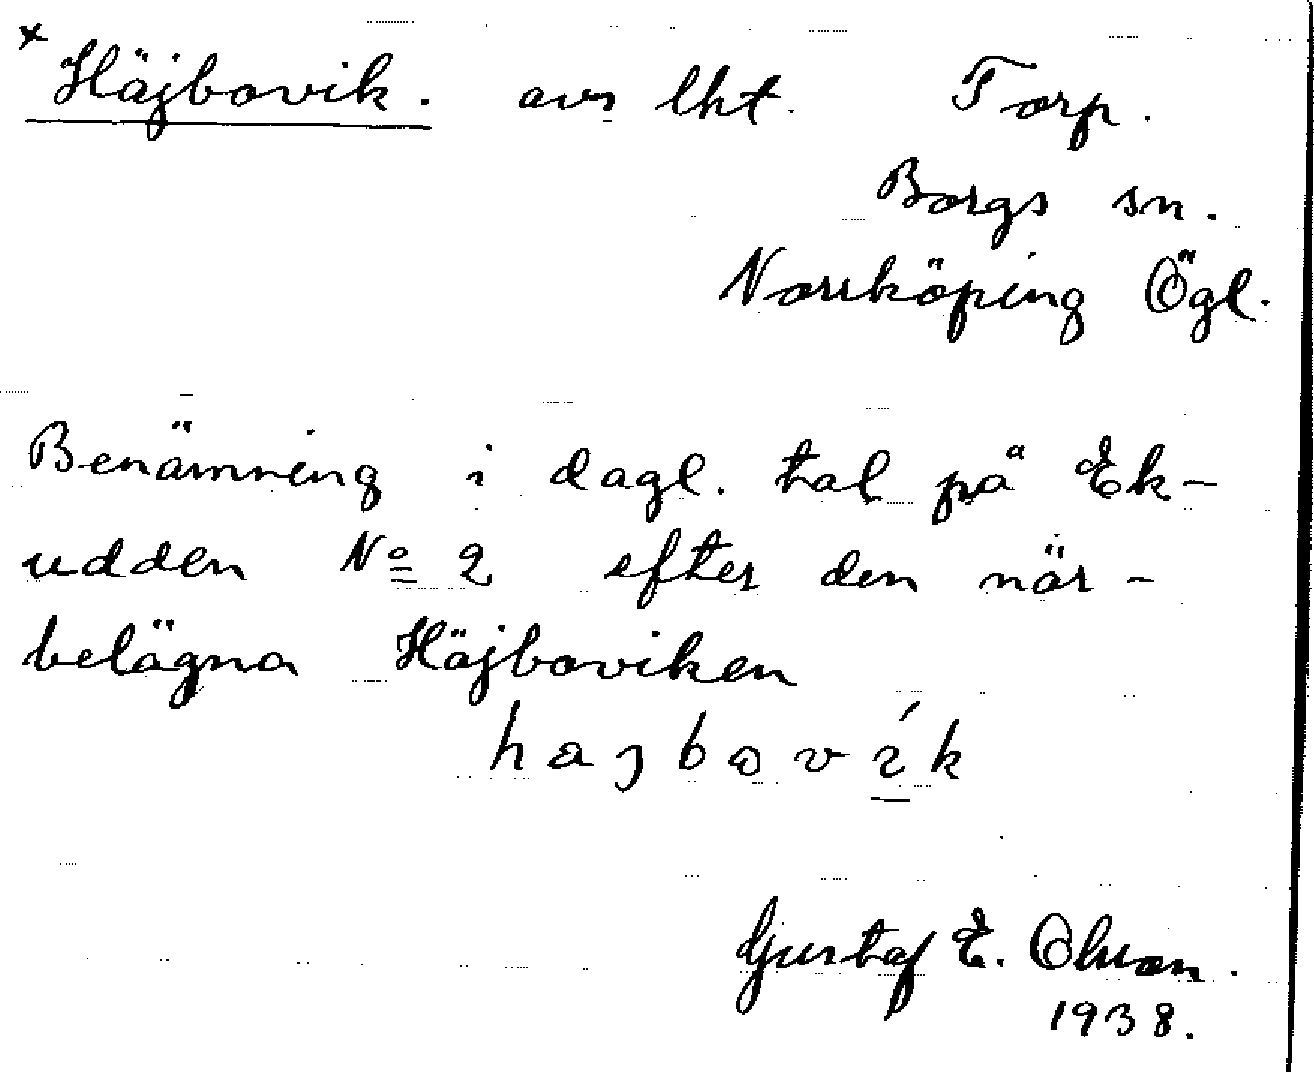 × Häjbovik. avs lht. Torp.
Borgs sn.
Norrköping Ögl.
Benämning i dagl. tal på Ek-
udden Nº 2 efter den när-
belägna Häjboviken
hajbovík
Gustaf E. Olson.
1938.